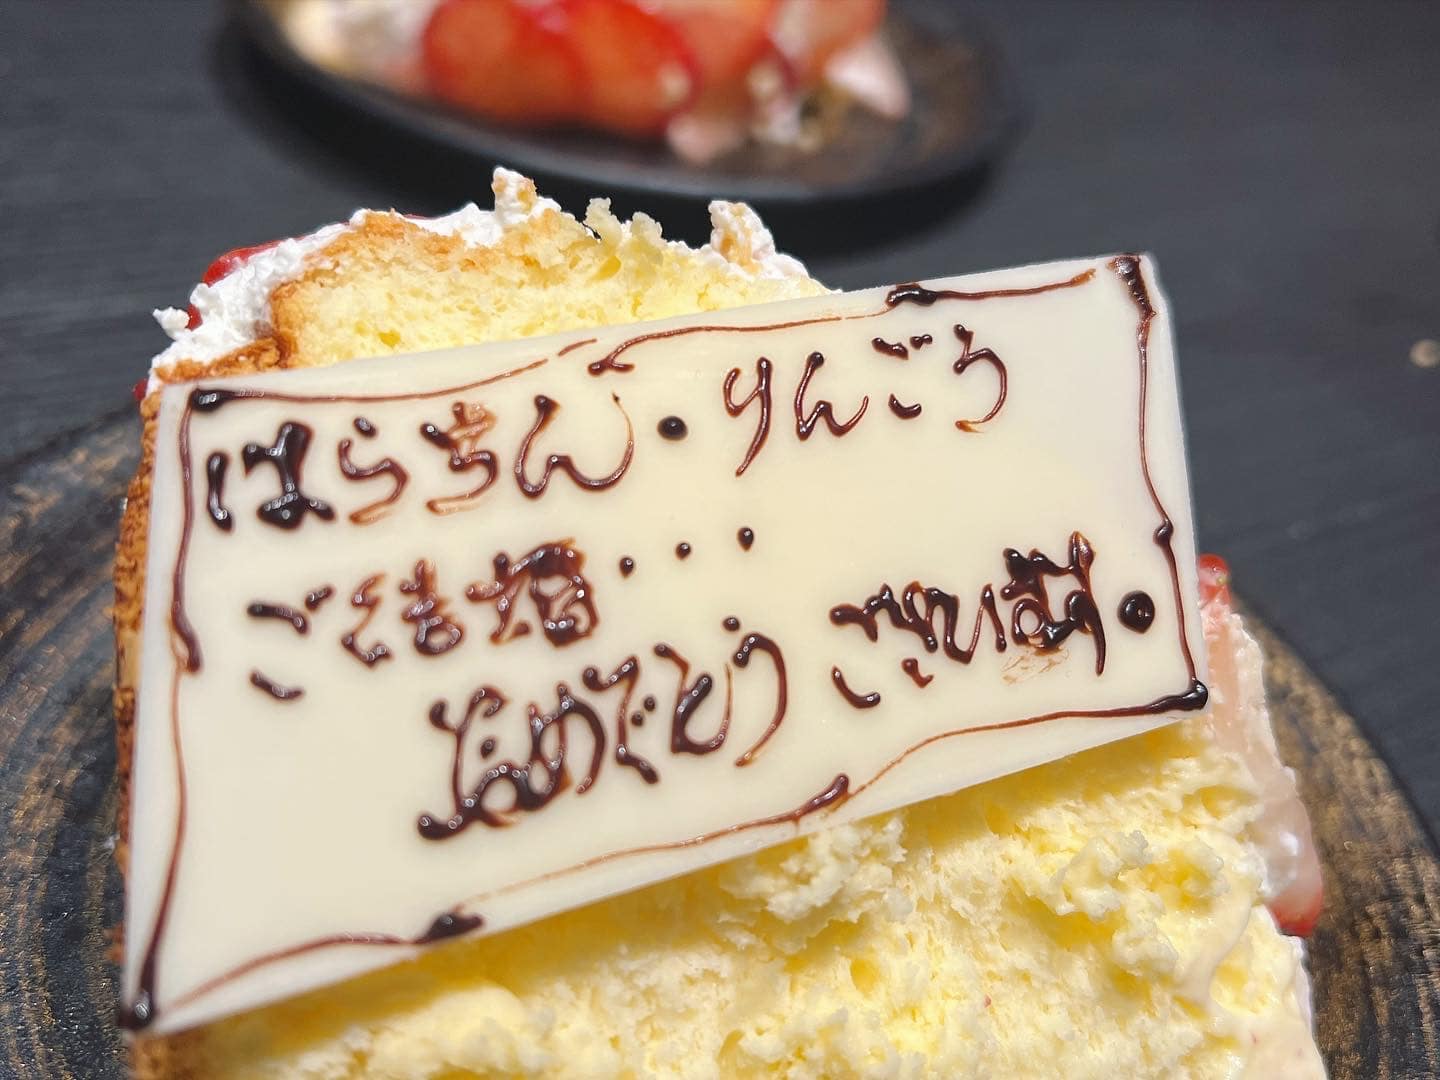 はらちん・りんごう
ご結婚・・・
おめでとうございます。